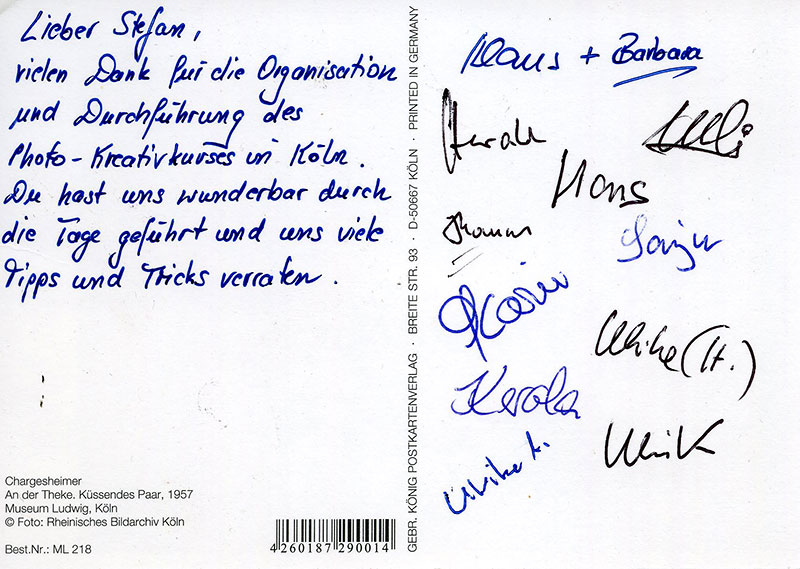 Lieber Stefan,
vielen Dank für die Organisation
und Durchführung des
Photo-Kreativkurses in Köln.
Du hast uns wunderbar durch
die Tage geführt und uns viele
Tipps und Tricks verraten.
Chargesheimer
An der Theke. Küssendes Paar, 1957
Museum Ludwig, Köln
© Foto: Rheinisches Bildarchiv Köln
Best.Nr.: ML 218
4260187290014
GEBR. KÖNIG POSTKARTENVERLAG · BREITE STR. 93 · D-50667 KÖLN · PRINTED IN GERMANY
Klaus + Barbara
Hans
Karin
Ulrike (H.)
Ulrike